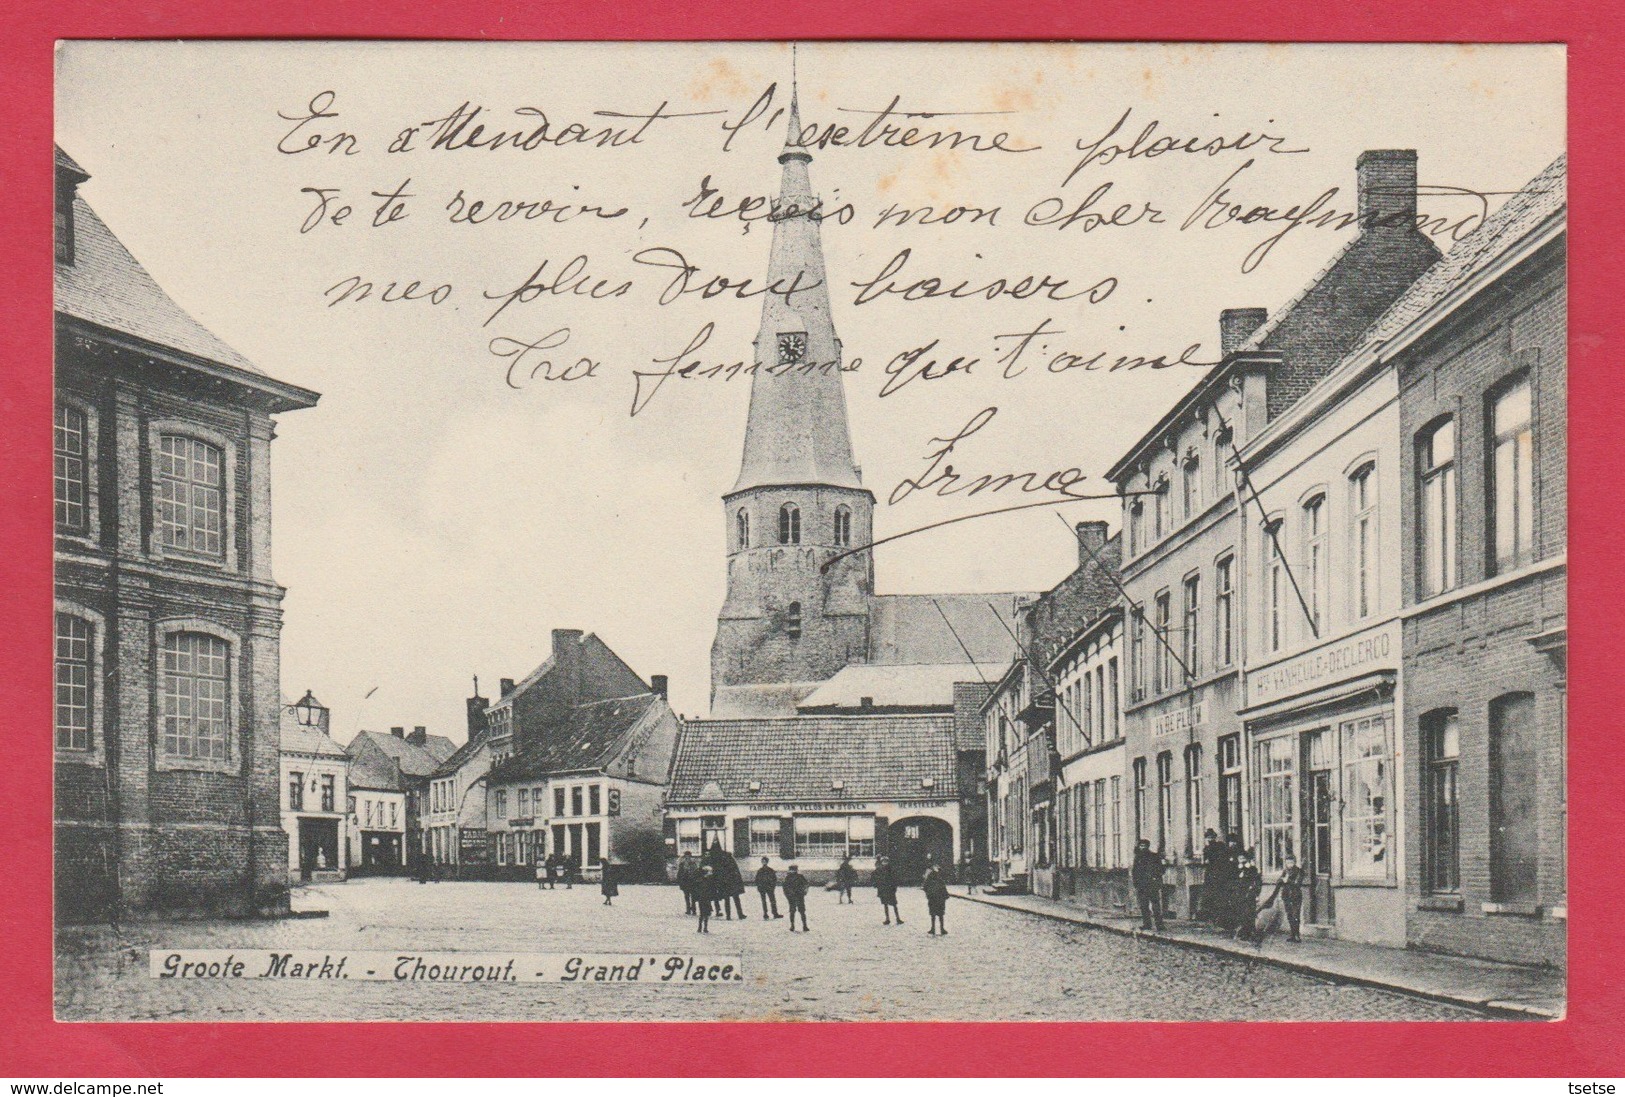 En attendant l'extrême plaisir
de te revoir, reçois mon cher Raymond
mes plus doux baisers.
Ta femme qui t'aime
Irma
Hte VANHEULE-DECLERCQ
IN DE PLUIM
IN DEN ANKER
FABRIEK VAN VELOS EN STOVEN
HERSTELLING
TABAK
S
Groote Markt. - Thourout. - Grand' Place.
www.delcampe.net
tsetse